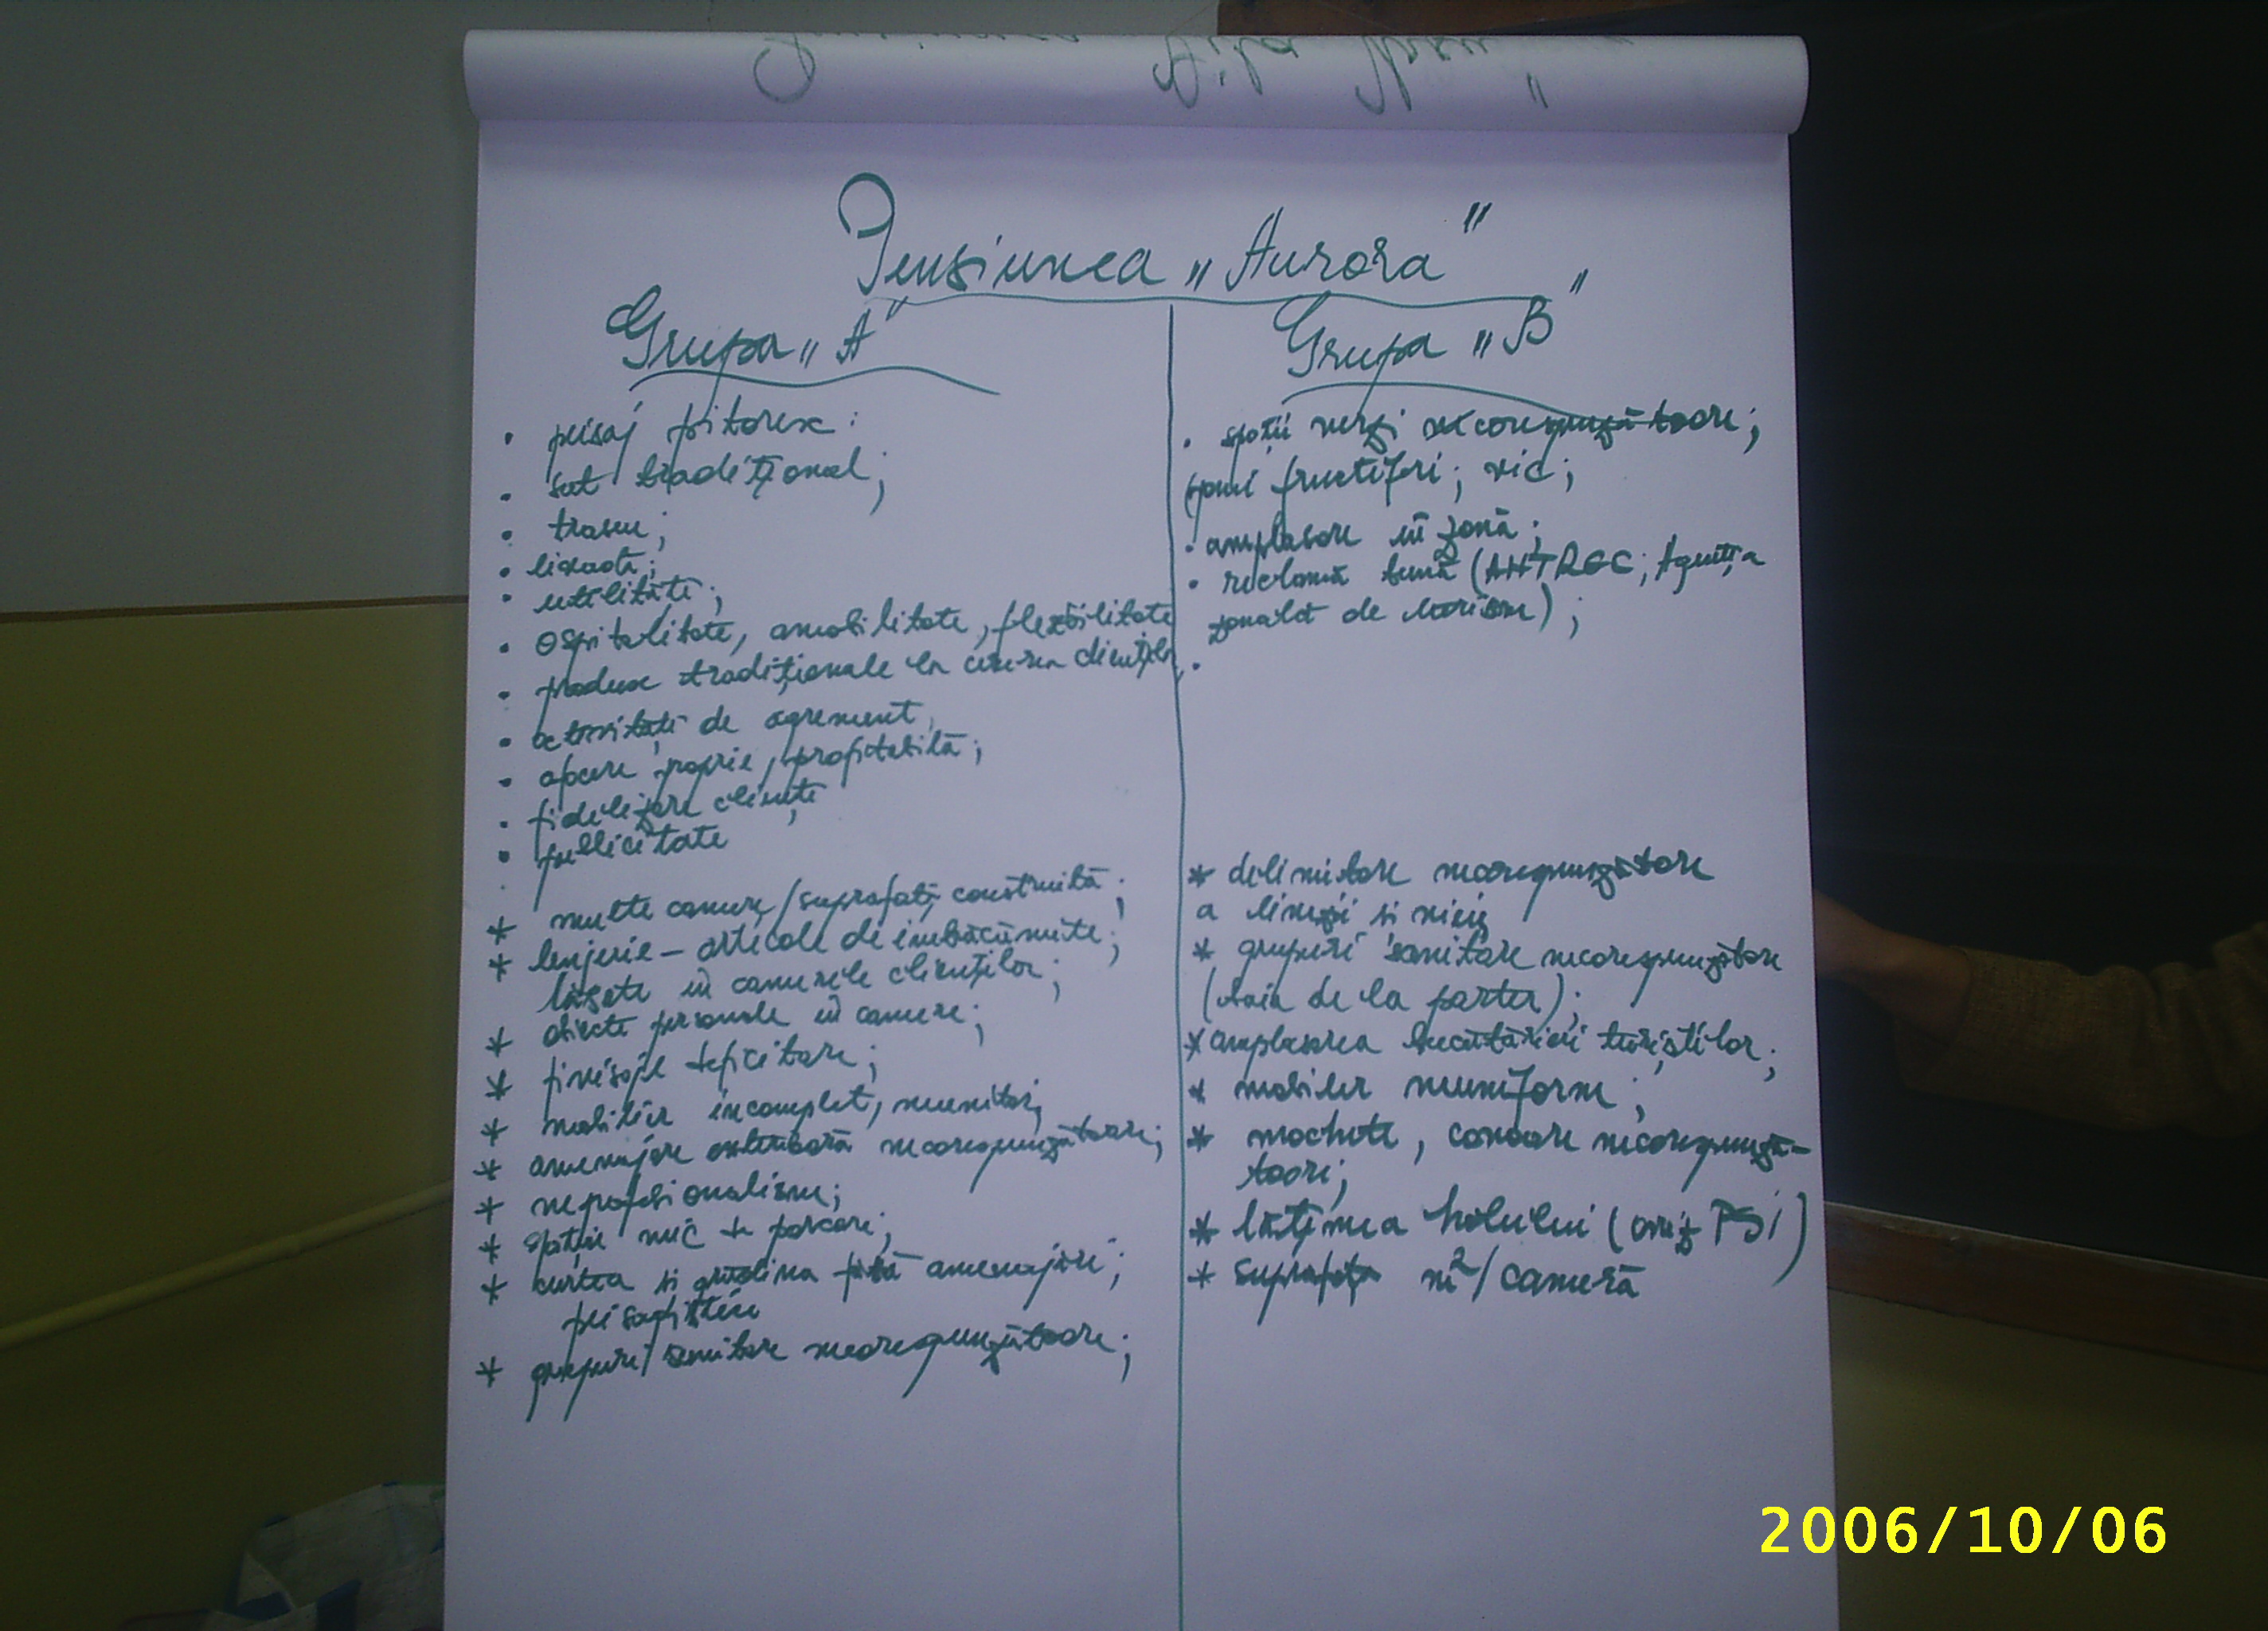 Pensiunea „Aurora"
Grupa „A"
• peisaj pitoresc;
• sat tradițional;
• traseu;
• livadă;
• utilități;
• ospitalitate, amabilitate, flexibilitate
• produse tradiționale la cererea clienților
• activități de agrement,
• afacere proprie, profitabilă;
• fidelizare clienți
• publicitate
* multe camere/suprafață construită;
* lenjerie – articole de îmbăcăminte;
lăsate în camerele clienților;
* obiecte personale în camere;
* finisaje deficitare;
* mobilier incomplet, neunitar,
* amenajare exterioară necorespunzătoare;
* neprofesionalism;
* spațiu mic de parcare;
* curtea si grădina fără amenajări;
peisagistice
* grupuri sanitare necorespunzătoare;
Grupa „B"
• spații verzi necorespunzătoare;
pomi fructiferi; vie;
• amplasare în zonă;
• reclamă bună (ANTREC; Agenția
zonală de turism);
•
* delimitare necorespunzătoare
a limzii si niciz
* grupuri sanitare necorespunzătoare
(baia de la parter);
* amplasarea bucătăriei turiștilor;
* mobilier neuniform;
* mochete, covoare necorespunză-
toare;
* lățimea holului (aviz PSI)
* suprafața m²/cameră
2006/10/06